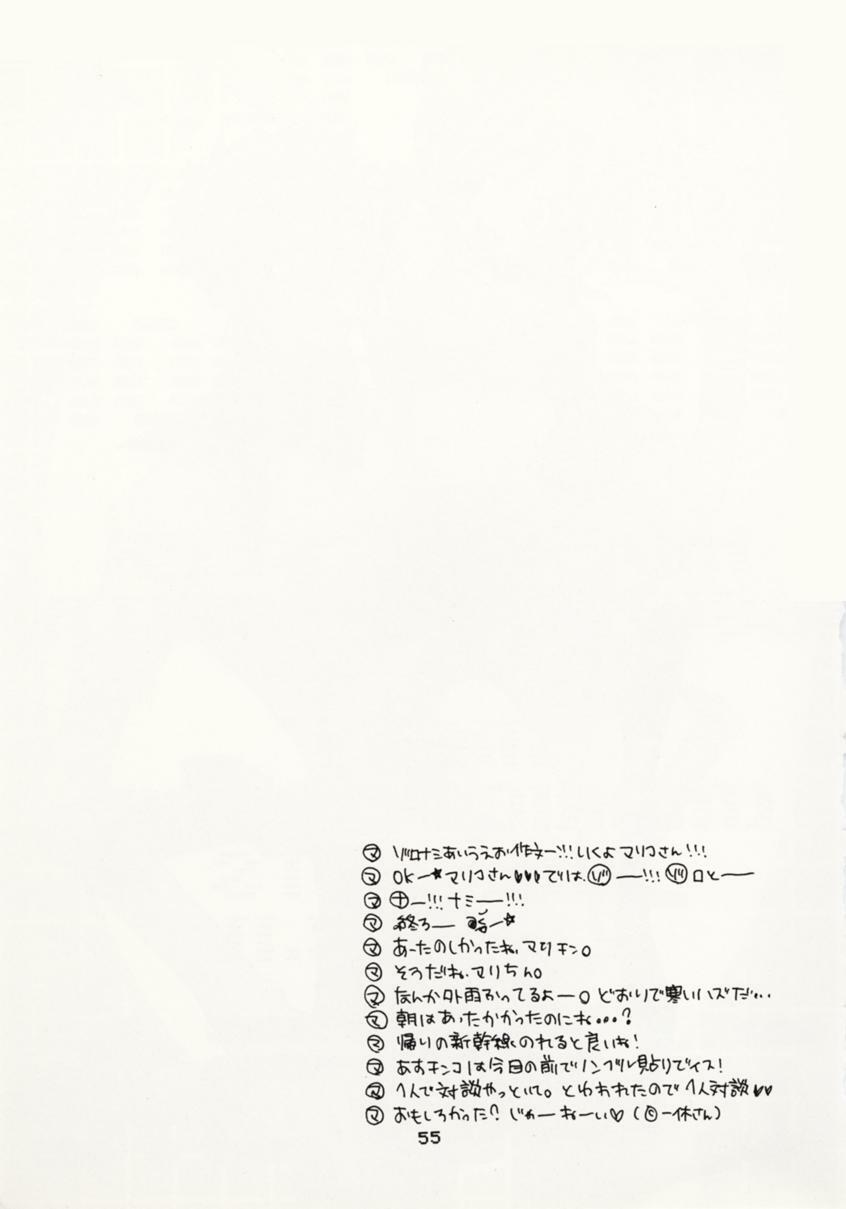 ㋮ ゾロナミあいうえお作文ー!!! いくよ マリコさん!!!
㋮ OKー★マリコさん♥♥♥では、ゾ ー!!! ゾロとー
㋮ ナー!!! ナミー!!!
㋮ 終ろー ー★
㋮ あーたのしかったね、マリチン。
㋮ そうだね、マリちん。
㋮ なんか外雨ふってるよー。どおりで寒いハズだ…
㋮ 朝はあったかかったのにね…?
㋮ 帰りの新幹線のれると良いね!
㋮ あすチンコは今目の前でノンブル貼りでイス!
㋮ 1人で対談やっといて。といわれたので1人対談♥♥
㋮ おもしろかった? じゃーねーい♡(©一休さん)
55